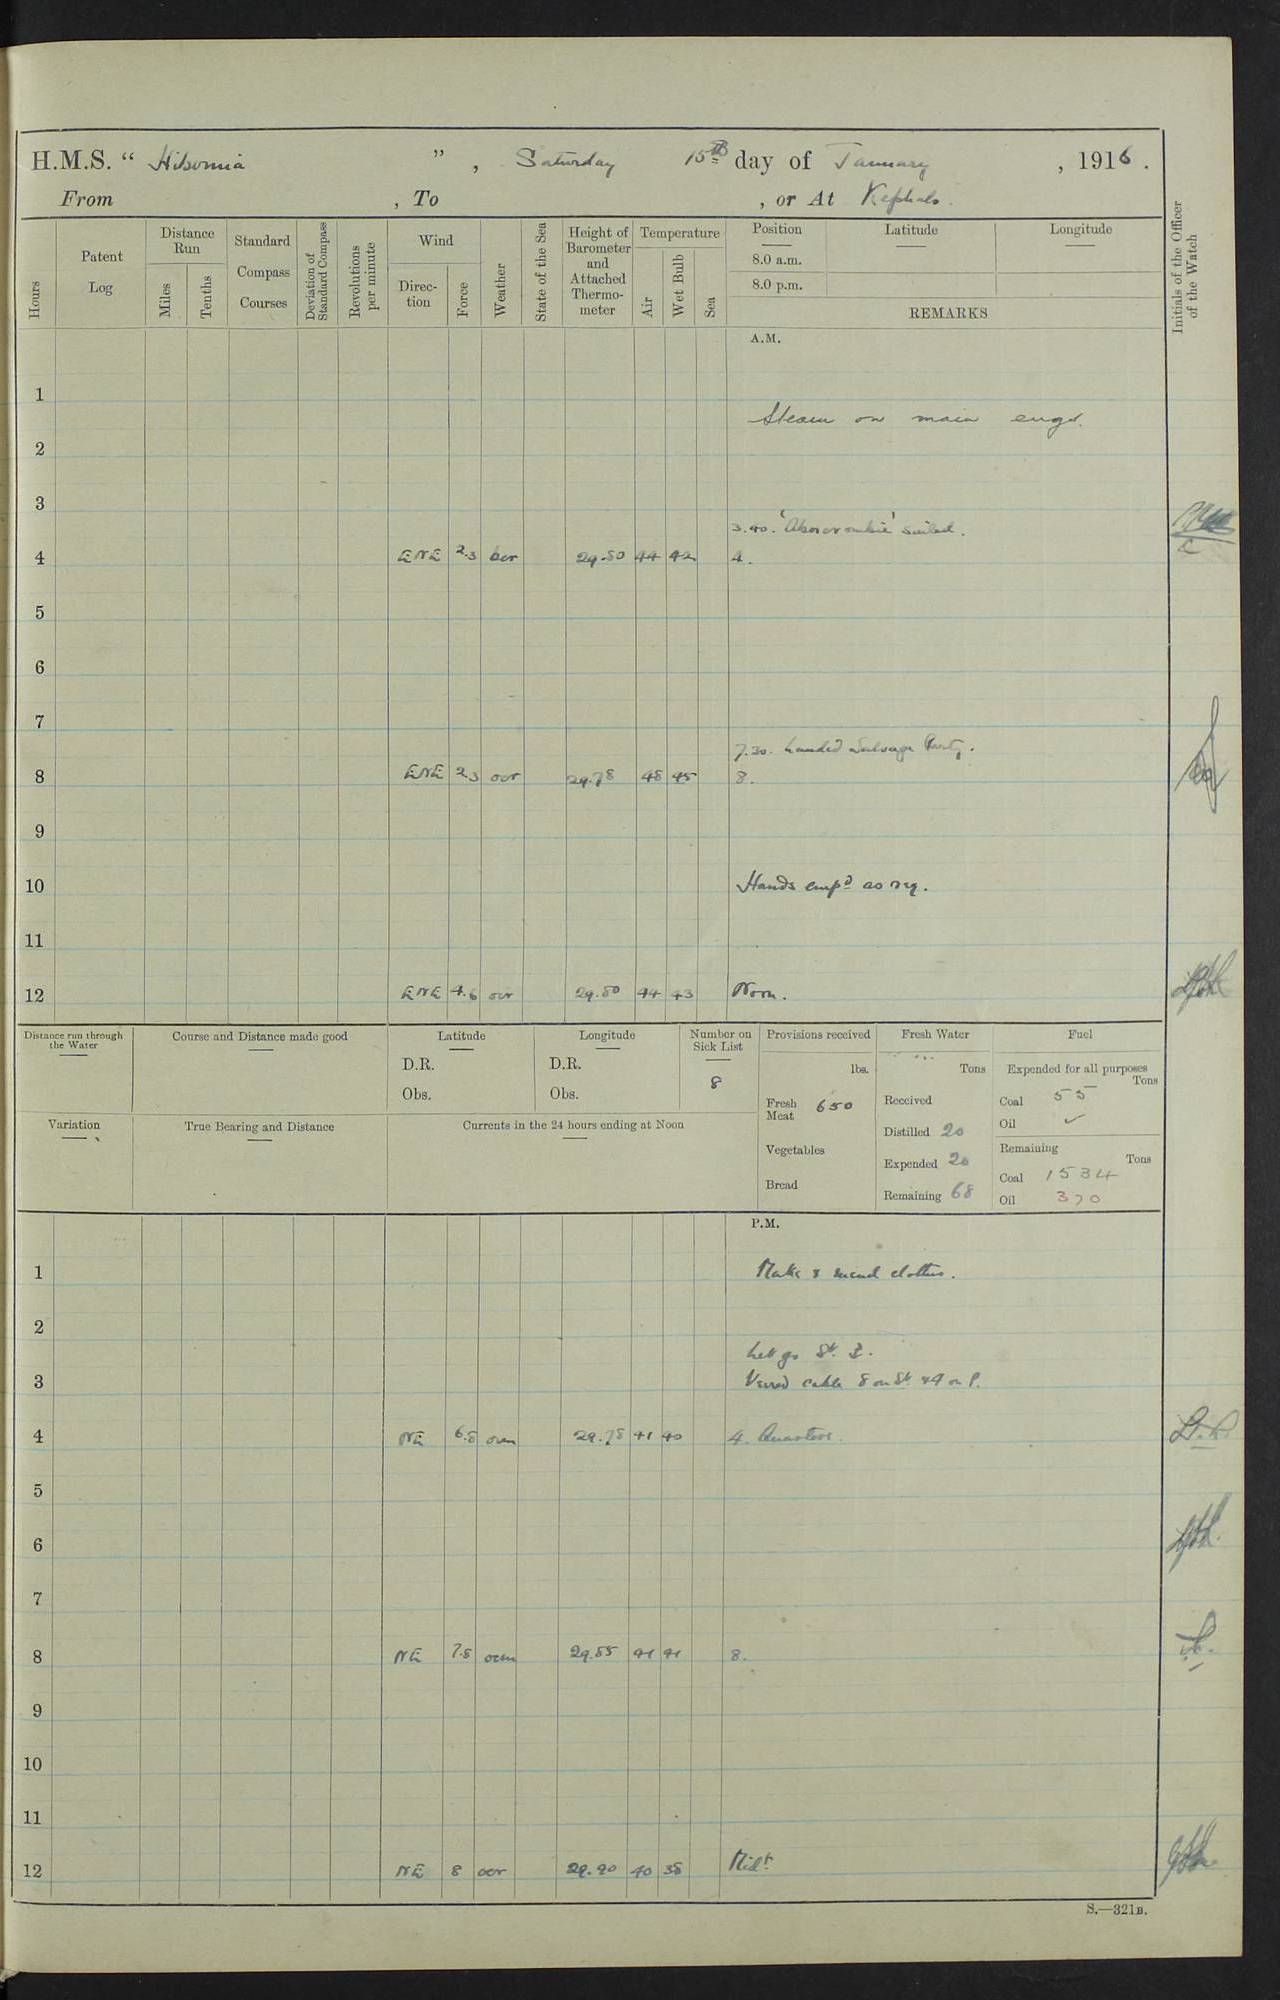 H.M.S. “ Hibernia ” , Saturday 15th day of January , 1916 .
From , To , or At Kephalo .
Hours
Patent Log
Distance Run
Miles
Tenths
Standard Compass Courses
Deviation of Standard Compass
Revolutions per minute
Wind
Direc-tion
Force
Weather
State of the Sea
Height of Barometer and Attached Thermo-meter
Temperature
Air
Wet Bulb
Sea
Position
8.0 a.m.
8.0 p.m.
Latitude
Longitude
REMARKS
Initials of the Officer of the Watch
A.M.
1
Steam on main engs.
2
3
3.40. 'Abercrombie' sailed.
4 ENE 2.3 bcr 29.80 44 42 4.
5
6
7
7.30. Landed Salvage Party.
8 ENE 2.3 ocr 29.78 48 45 8.
9
10 Hands empd as req.
11
12 ENE 4.6 ocr 29.80 44 43 Noon.
Distance run through the Water
Course and Distance made good
Latitude
D.R.
Obs.
Longitude
D.R.
Obs.
Number on Sick List
8
Variation
True Bearing and Distance
Currents in the 24 hours ending at Noon
Provisions received
lbs.
Fresh Meat 650
Vegetables
Bread
Fresh Water
Tons
Received
Distilled 20
Expended 20
Remaining 68
Fuel
Expended for all purposes
Tons
Coal 55
Oil ✓
Remaining
Tons
Coal 1534
Oil 370
P.M.
1 Make & mend clothes.
2
Let go St. B.
3 Veered cable 8 on St. & 9 on P.
4 NE 6.8 29.78 41 40 4. Quarters.
5
6
7
8 NE 7.8 29.85 41 41 8.
9
10
11
12 NE 8 ocr 29.90 40 38 Midt.
S.—321B.